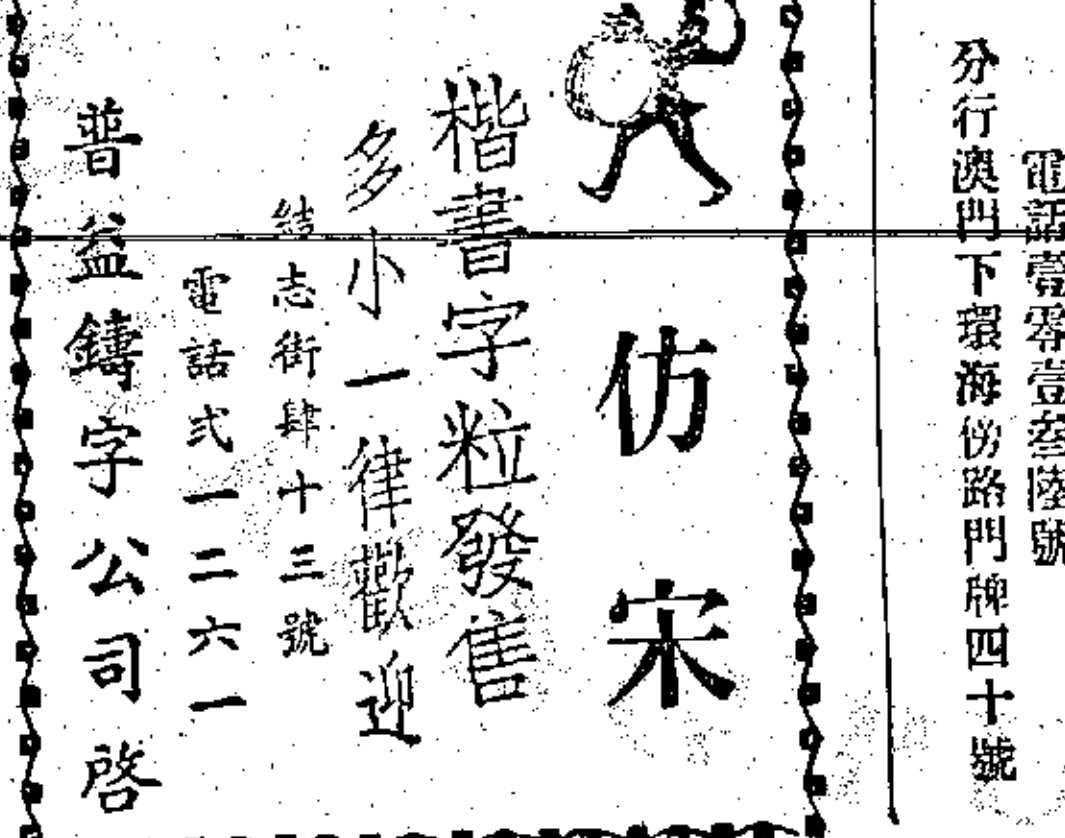 電話壹零壹叁陸號
分行澳門下環海傍路門牌四十號
仿宋
楷書字粒發售
多小一律歡迎
結志街肆十三號
電話弍一二六一
普益鑄字公司啓